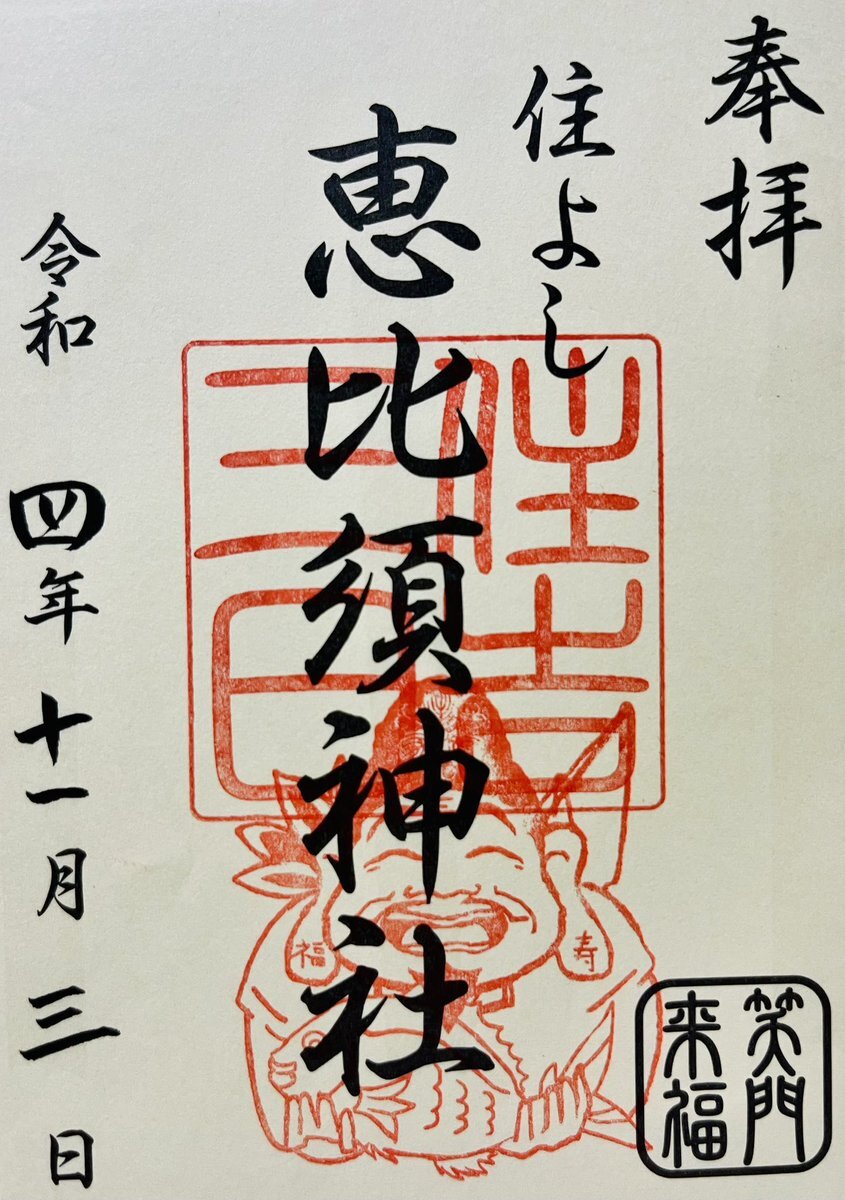 奉拝
住よし
恵比須神社
令和四年十一月三日
住吉
三日
寿
福
笑門
来福